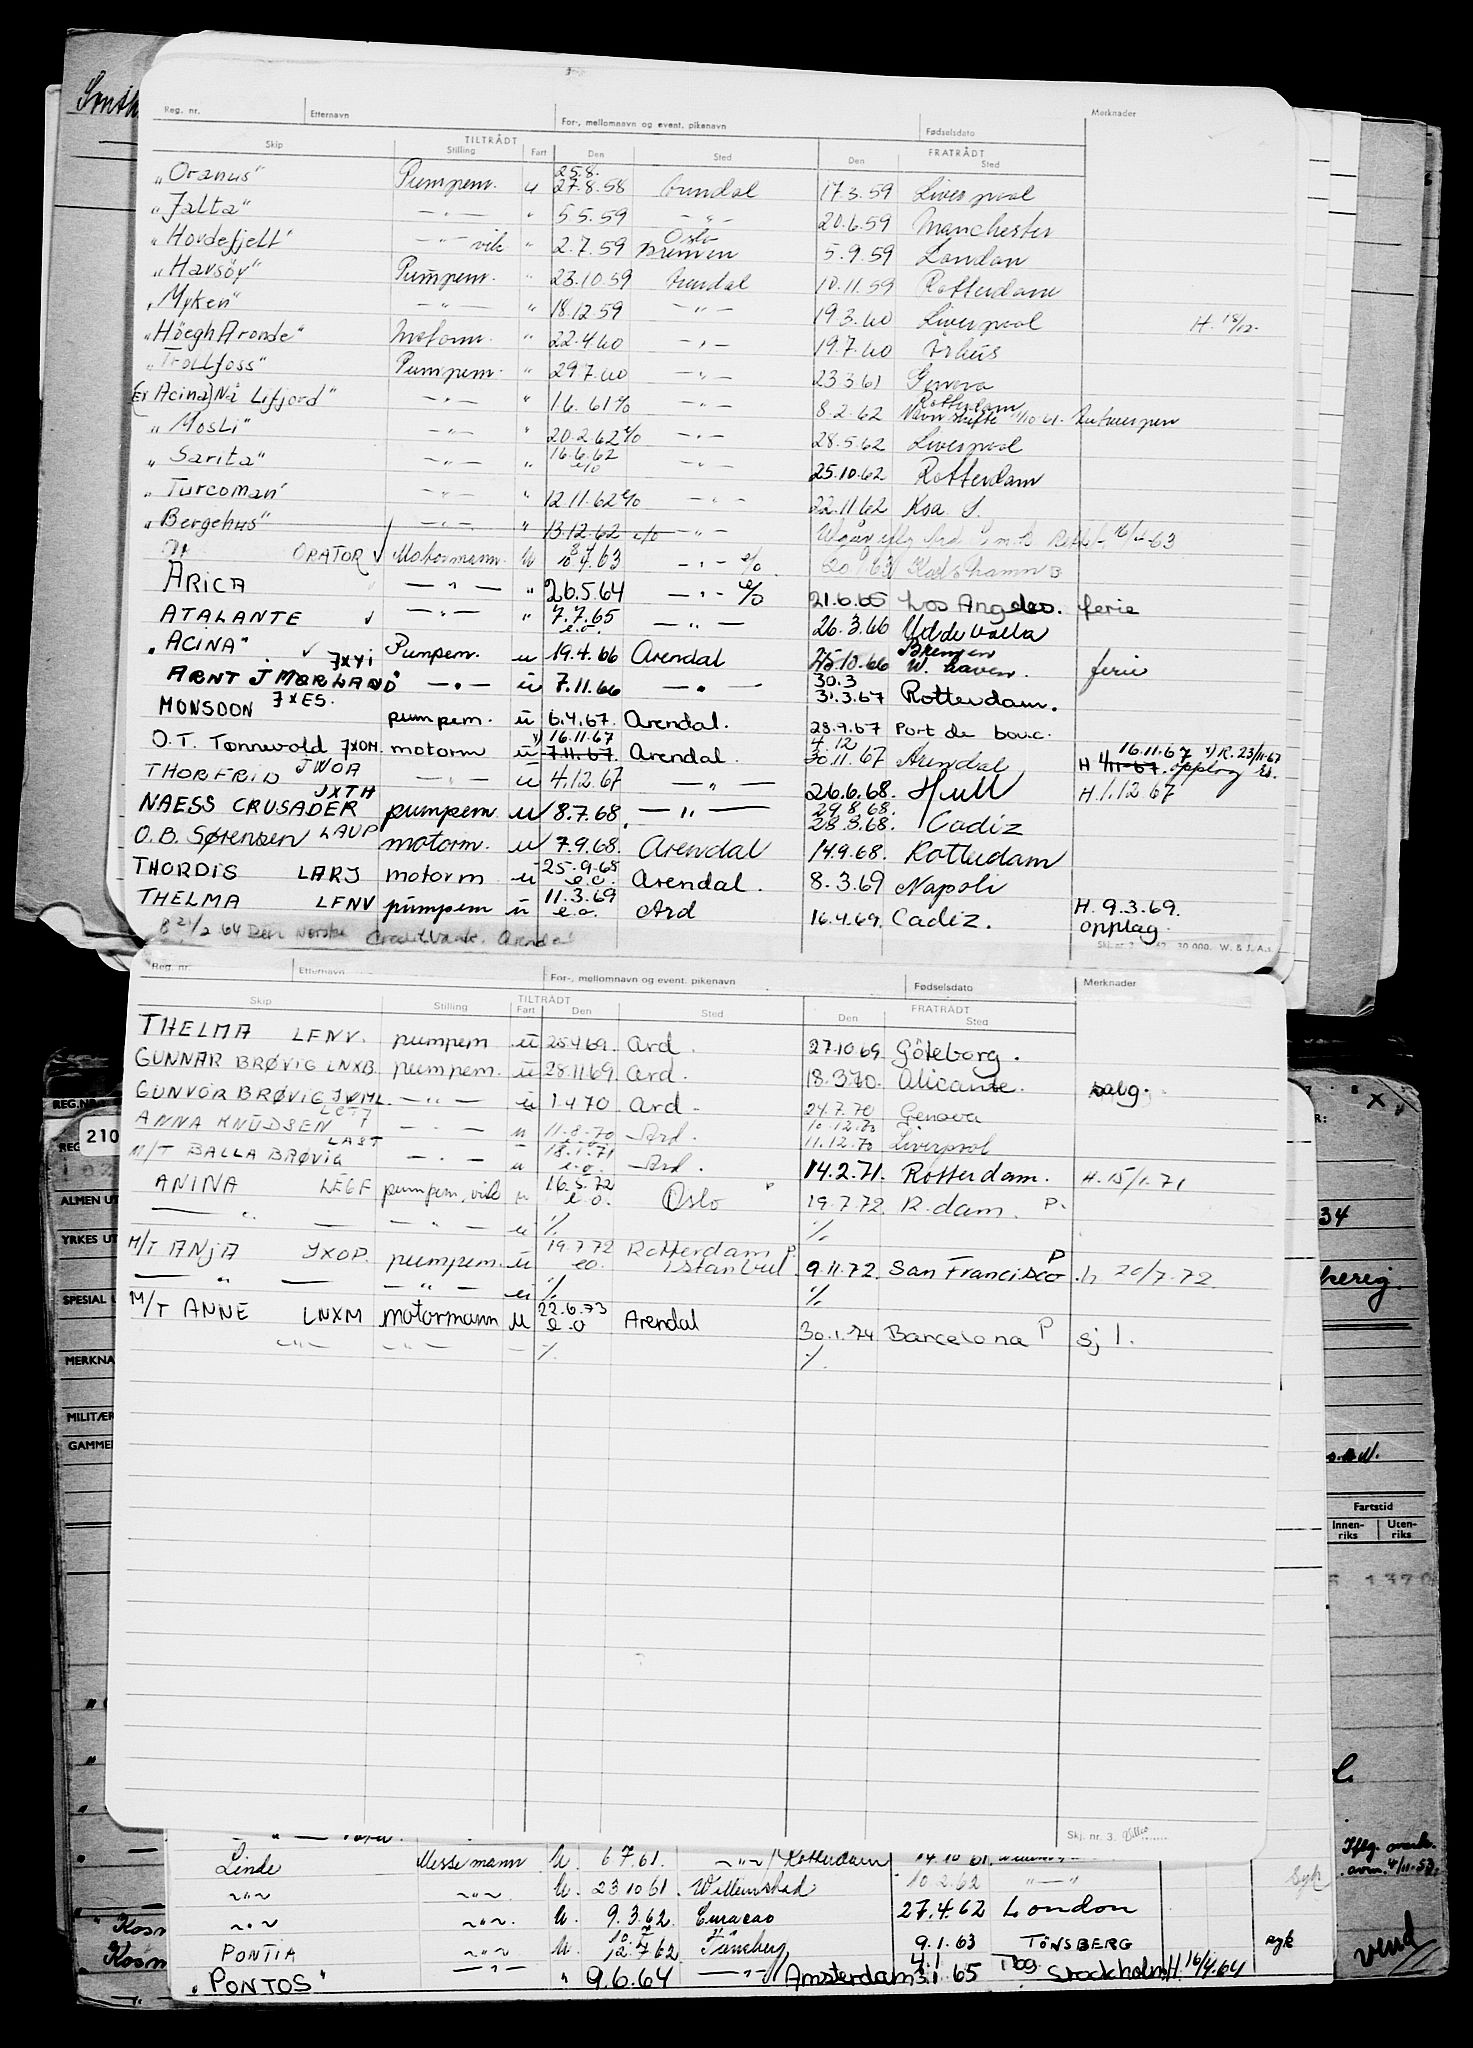 Smith
Reg. nr. Etternavn For-, mellomnavn og event. pikenavn Fødselsdato Merknader
TILTRÅDT FRATRÅDT
Skip Stilling Fart Den Sted Den Sted
25.8.
"Oranus" Pumpem. u 27.8.58 Arendal 17.3.59 Liverpool
"Jalta" — " — " 5.5.59 — " — 20.6.59 Manchester
Oslo
"Hardefjell" — " — vik " 2.7.59 Bremen 5.9.59 London
"Havsöy" Pumpem. " 23.10.59 Arendal 10.11.59 Rotterdam
"Myken" — " — " 18.12.59 — " — 19.3.60 Liverpool H. 18/12.
"Höegh Aronde" Motorm. " 22.4.60 — " — 19.7.60 Århus
"Trollfoss" Pumpem. " 29.7.60 — " — 23.3.61 Genova
Rotterdam
(Ex Acina) Nå Lifjord" — " — " 16. 61 % — " — 8.2.62 Navn skifte 11/10 61. Antwerpen
"Mosli" — " — " 20.2.62 % — " — 28.5.62 Liverpool
"Sarita" — " — " 16.6.62 e/o — " — 25.10.62 Rotterdam
"Turcoman" — " — " 12.11.62 e/o — " — 22.11.62 Ksa S.
"Bergehus" — " — " 13.12.62 e/o — " — Utgår iflg
ORATOR ✓ Motormann. u 63 — " — e/o 20 63 Karlshamn B
ARICA — " — " 26.5.64 — " — e/o 21.6.65 Los Angeles. ferie
ATALANTE ✓ — " — " 7.7.65 e.o. — " — 26.3.66 Uddevalla
Bremen
"ACINA" ✓ JXYI Pumpem. u 19.4.66 Arendal 25.10.66 W. haven. ferie
30.3
ARNT J MØRLAND" — " — u 7.11.66 — " — 31.3.67 Rotterdam.
MONSOON JXES. pumpem. u 6.4.67. Arendal. 28.9.67 Port de bouc.
x) 16.11.67 4.12 16.11.67 x) R. 23/11-67
O.T. Tønnevold JXOM. motorm u 7.11.67 Arendal. 30.11.67 Arendal H 4/11-67. opplag
THORFRID JWOA — " — u 4.12.67 — " — 26.6.68. Hull H. 1.12 67
29.8.68.
NAESS CRUSADER JXTH pumpem u 8.7.68. — " — 28.8.68. Cadiz
O.B. Sørensen LAUP motorm. u 7.9.68. Arendal 14.9.68. Rotterdam
THORDIS LARJ motorm u 25.9.68 e.o. Arendal. 8.3.69 Napoli
THELMA LFNV pumpem u 11.3.69 e.o. Ard 16.4.69. Cadiz. H. 9.3.69. opplag.
8 21/2 64 Den Norske Creditbank. Arendal
Skj. nr. 3 30 000. W. & J. A.s.
Reg. nr. Etternavn For-, mellomnavn og event. pikenavn Fødselsdato Merknader
TILTRÅDT FRATRÅDT
Skip Stilling Fart Den Sted Den Sted
THELMA LFNV. pumpem u 25.4.69. Ard. 27.10.69 Göteborg.
GUNNAR BRØVIG LNXB. pumpem. u 28.11.69 Ard. 18.3.70. Alicante. salg.
GUNVOR BRØVIG JWML. — " — u 1.4.70 Ard. 24.7.70 Genova
10.12.70
ANNA KNUDSEN — " — u 11.8.70 e.o. Ard. 11.12.70 Liverpool
M/T BALLA BRØVIG LAST — " — u 18.1.71 e.o. Ard. 14.2.71. Rotterdam. H. 15/1.71
ANINA LEGF pumpem, vik u 16.5.72 e.o. Oslo P 19.7.72 R.dam. P.
— " — — " — u % %
M/T ANJA JXOP. pumpem. u 19.7.72 eo. Rotterdam P. Istanbul 9.11.72. San Francisco P h 20/7.72
— " — — " — u % %
M/T ANNE LNXM motormann u 22.6.73 e.o Arendal 30.1.74 Barcelona P sj 1.
— " — — " — — % %
Skj. nr. 3.
REG.NR.
210
ALMEN UT
YRKES UT
SPESIAL
MERKNA
MILITÆR
GAMMEL
7 8
X
R:
34
Fartstid
Innen-riks Uten-riks
Linde Messemann u. 6 7 61. — " — Rotterdam 14 10 61.
— " — — " — u. 23 10 61. Willemstad 10.2.62 — " — Syk
— " — — " — u. 9.3.62. Curacao 27.4.62 London
PONTIA — " — u. 12.7.62 Tönsberg 9.1.63 TÖNSBERG syk
4.1 Tbg.
"PONTOS" — " — " 9.6.64 — " — Amsterdam 3.1.65 Stockholm H. 16/4.64
Iflg. avm. 4/11-57.
Kosm
Kosm
vend